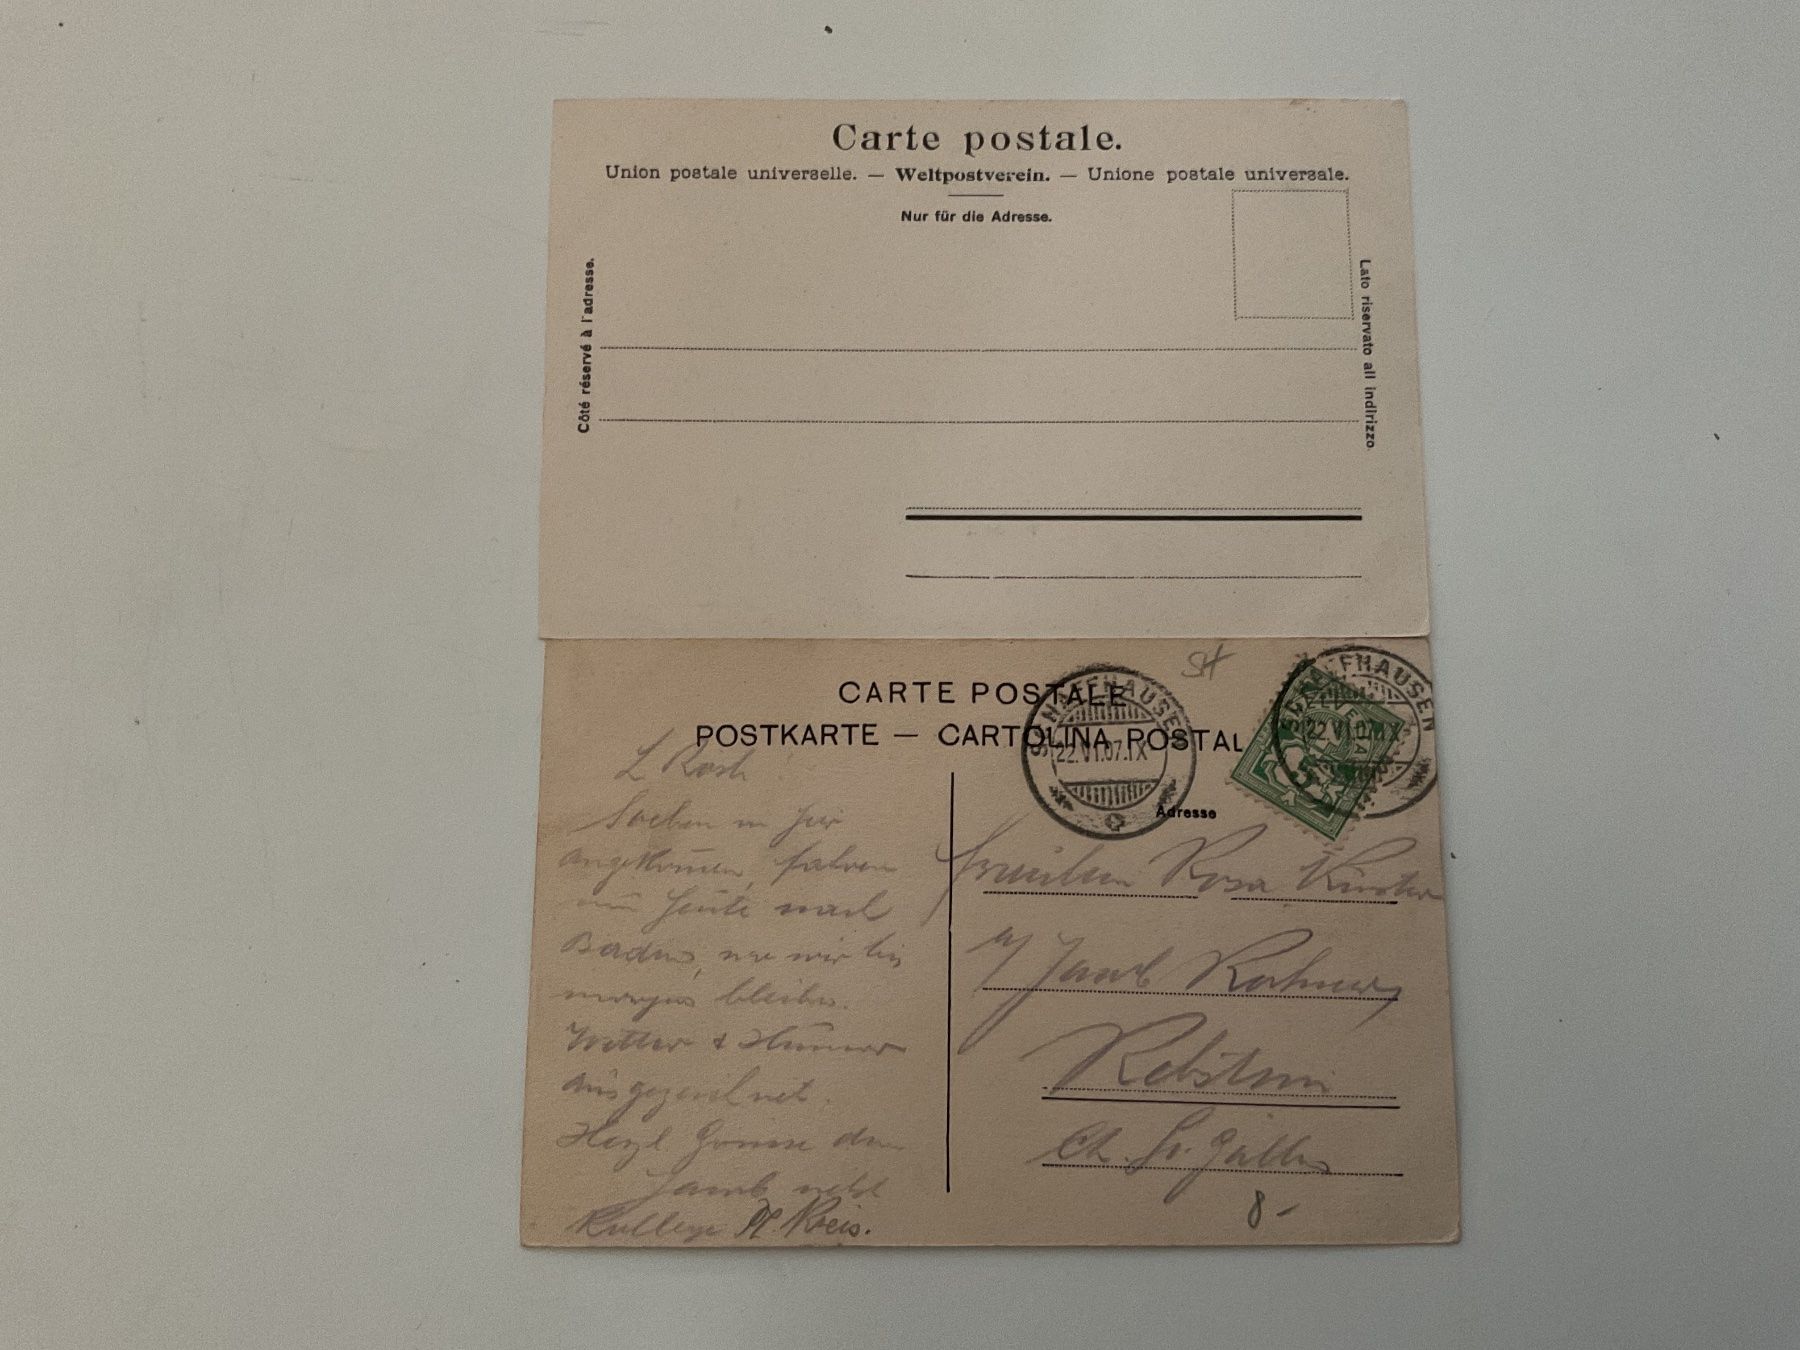 Carte postale.
Union postale universelle. — Weltpostverein. — Unione postale universale.
Nur für die Adresse.
Côté réservé à l'adresse.
Lato riservato all indirizzo.
SH
CARTE POSTALE
POSTKARTE — CARTOLINA POSTAL
SCHAFFHAUSEN
22.VI.07.IX
SCHAFFHAUSEN
22.VI.07.IX
5
Adresse
L. Rosa!
Soeben in hier
angekom̄en, fahren
nun heute nach
Baden, wo wir bis
morgen bleiben.
Wetter & Humor
ausgezeichnet.
Herzl. Grüsse dein
Jacob nebst
Kollege A. Kreis.
Fräulein Rosa
a/ Jacob Rohner,
Rebstein
Ct. St. Gallen
8-